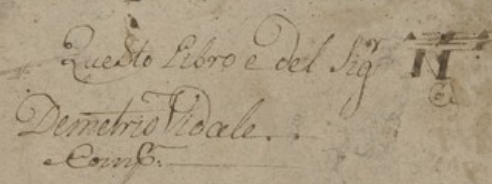 Questo Libro e Del Sig.r
Demetrio Vidale..